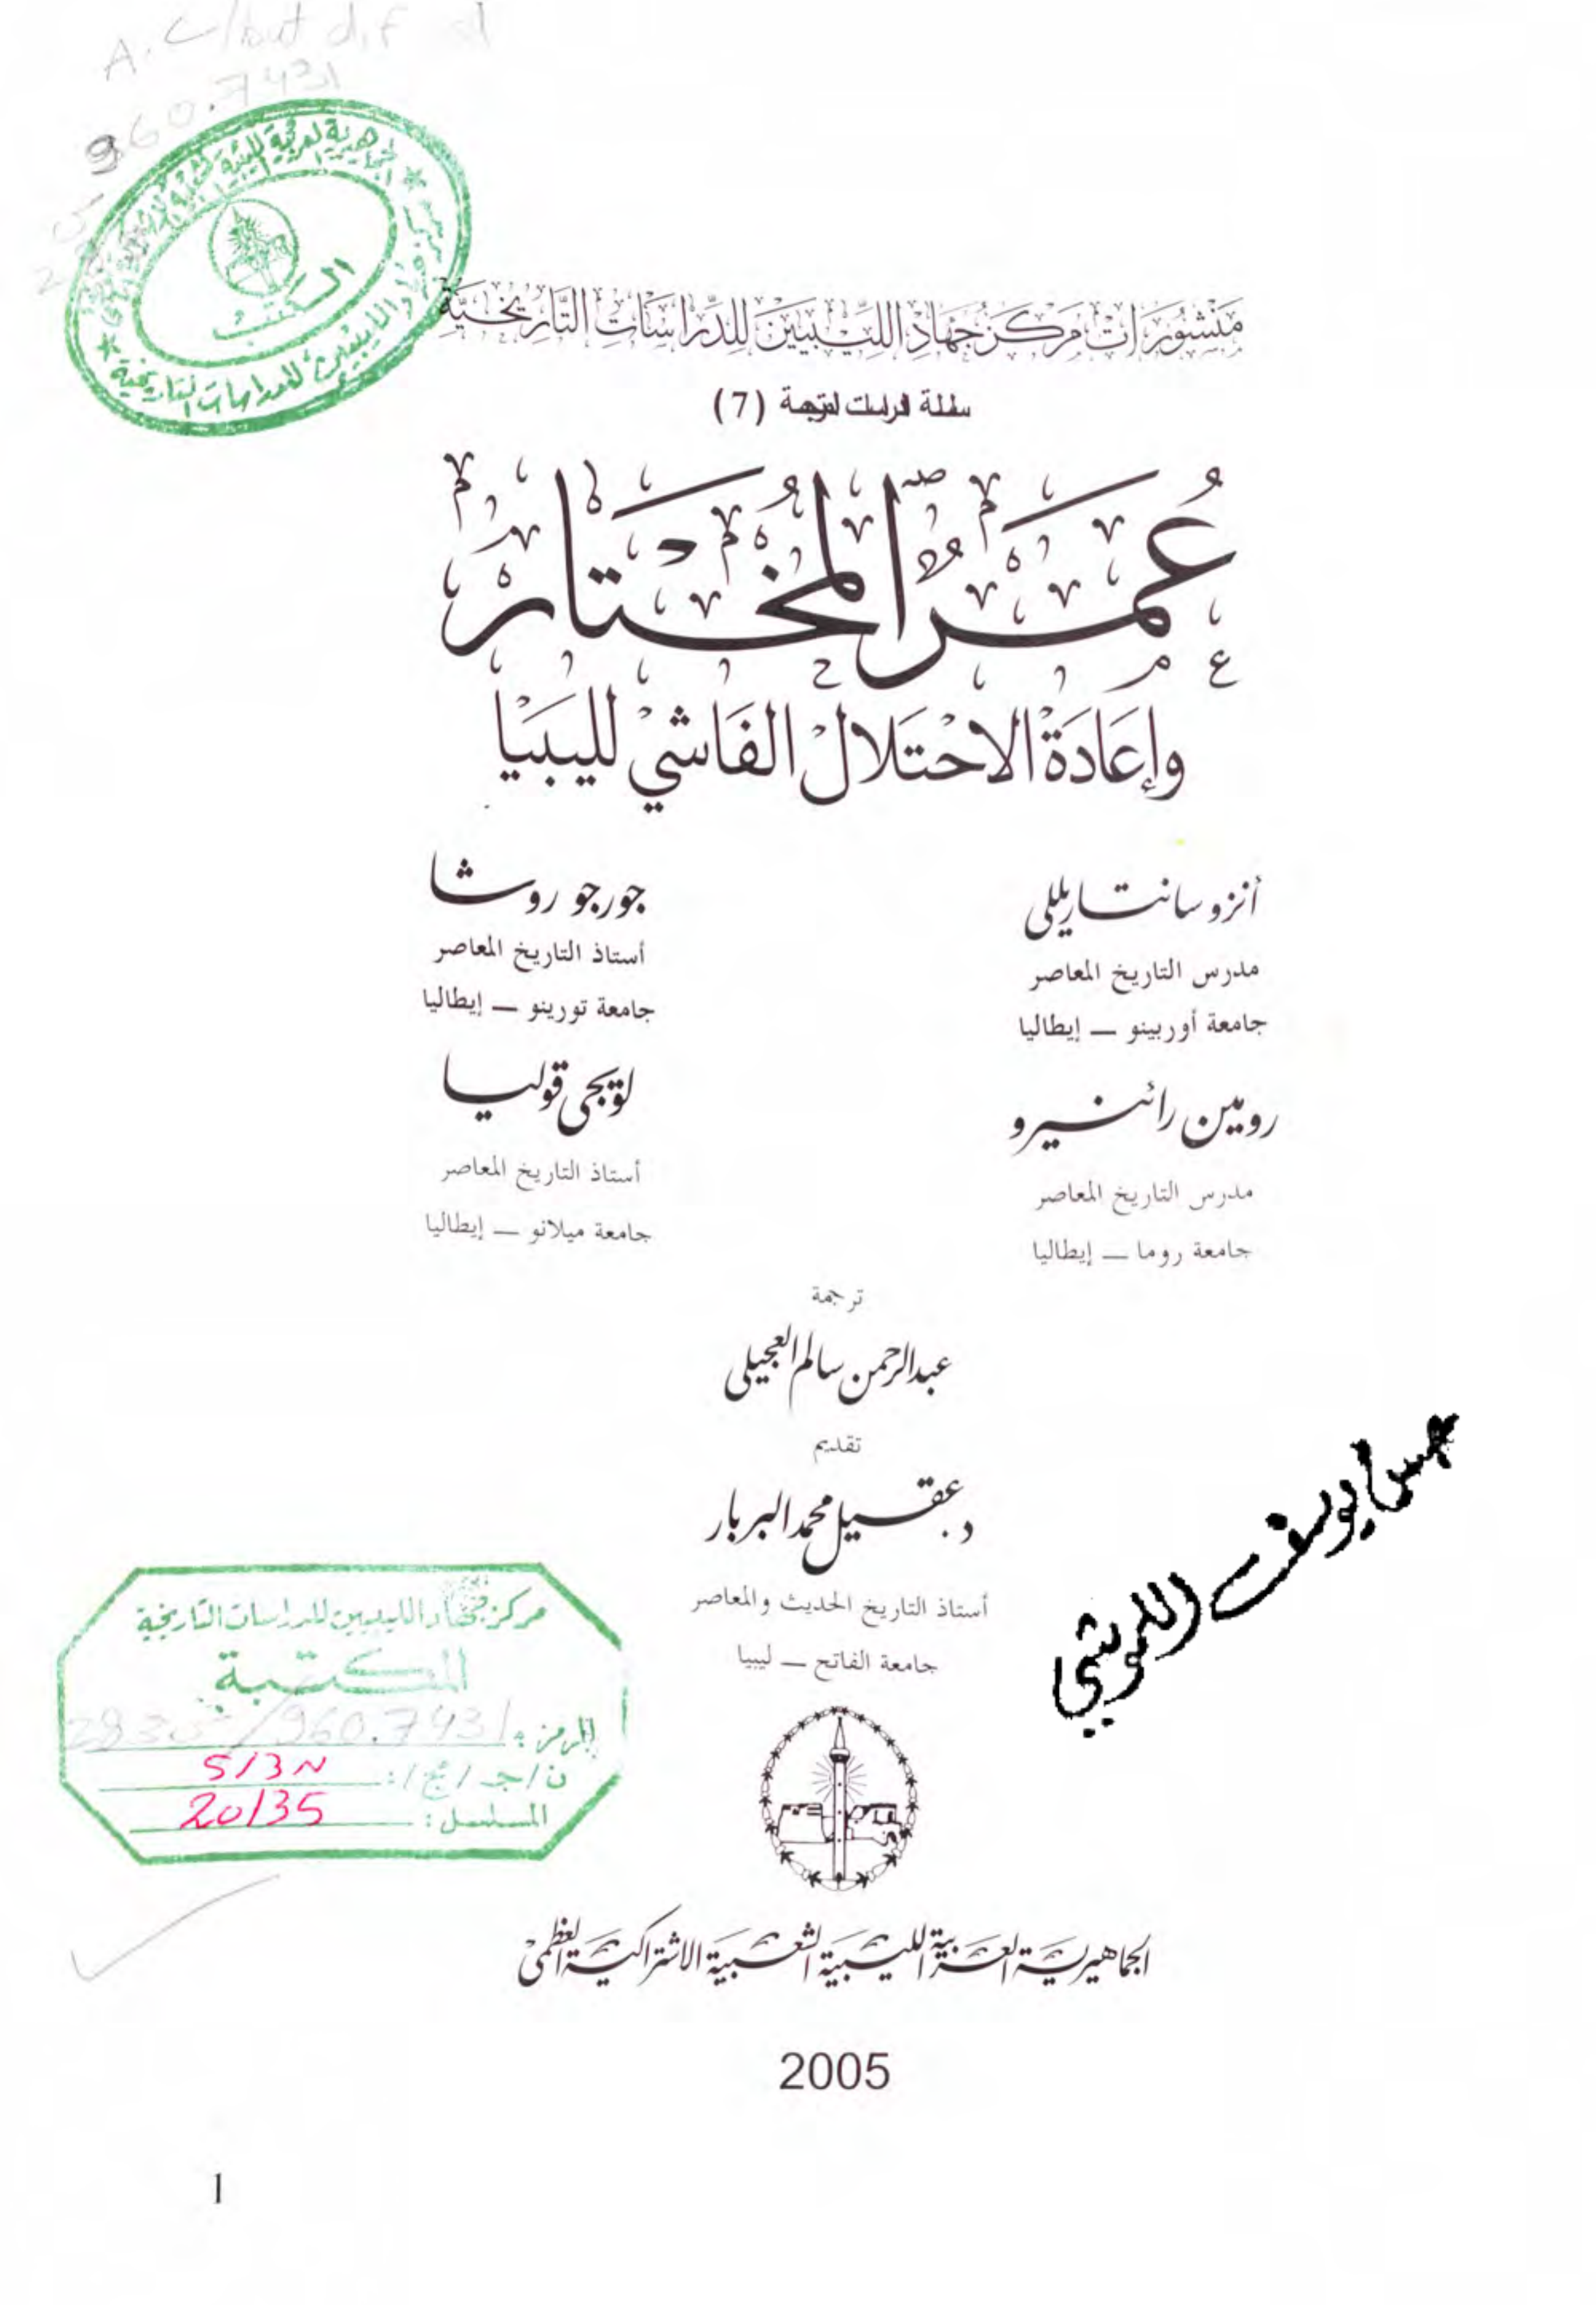 منشورات مركز جهاد الليبيين للدراسات التاريخية
سلسلة الدراسات المترجمة (7)
عُمَر المُختار
وإعَادَة الاحْتلال الفَاشي لليبيَا
أنزو سانتاريللي
مدرس التاريخ المعاصر
جامعة أوربينو — إيطاليا
جورجو روشا
أستاذ التاريخ المعاصر
جامعة تورينو — إيطاليا
رومين رائنيرو
مدرس التاريخ المعاصر
جامعة روما — إيطاليا
لويجي قوليا
أستاذ التاريخ المعاصر
جامعة ميلانو — إيطاليا
ترجمة
عبدالرحمن سالم العجيلي
تقديم
د. عقيل محمد البربار
أستاذ التاريخ الحديث والمعاصر
جامعة الفاتح — ليبيا
مركز جهاد الليبيين للدراسات التاريخية
المكتبة
الرمز: 960.7431
ن / ج / مج /: 5/3N
المسلسل: 20135
الجماهيرية العربية الليبية الشعبية الاشتراكية العظمى
2005
أ